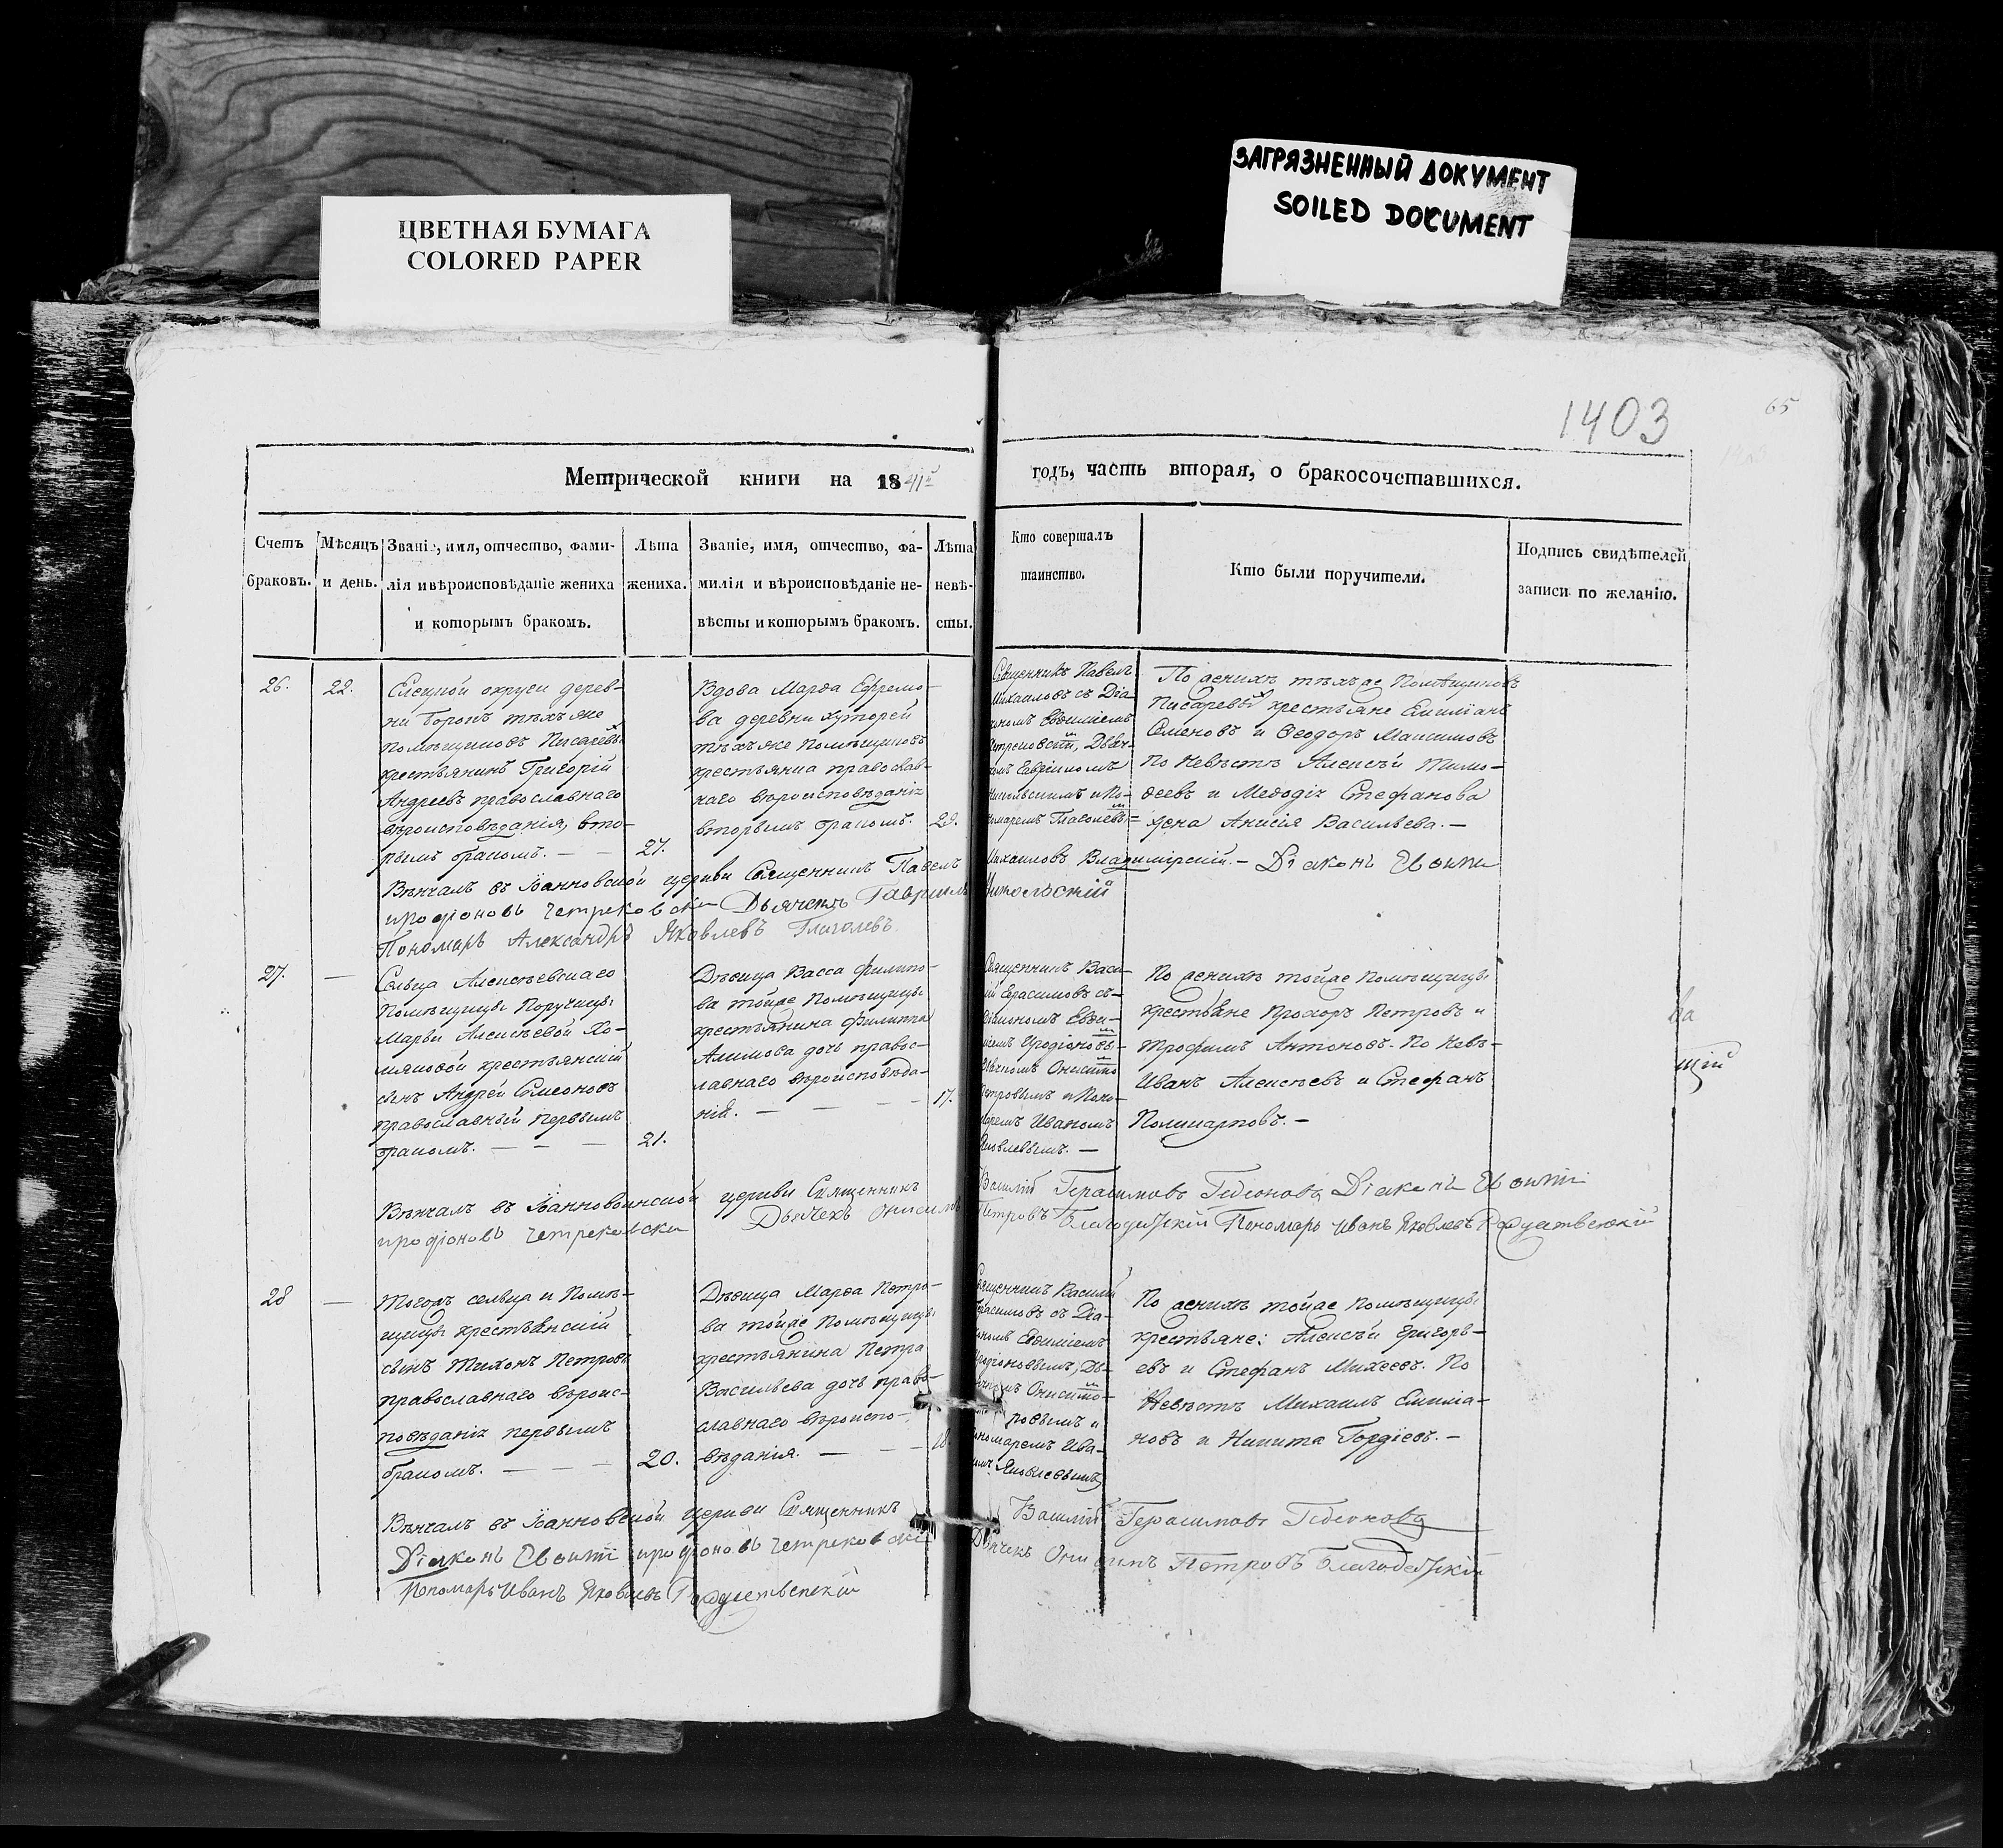 ЦВЕТНАЯ БУМАГА
COLORED PAPER
ЗАГРЯЗНЕННЫЙ ДОКУМЕНТ
SOILED DOCUMENT
1403
65
Метрической книги на 1841
годъ, часть вторая, о бракосочетавшихся.
Счетъ
браковъ.
Мѣсяцъ
и день.
Званіе, имя, отчество, фами-
лія и вѣроисповѣданіе жениха
и которымъ бракомъ.
Лѣта
жениха.
Званіе, имя, отчество, фа-
милія и вѣроисповѣданіе не-
вѣсты и которымъ бракомъ.
Лѣта
невѣ-
сты.
Кто совершалъ
таинство.
Кто были поручители.
Подпись свидѣтелей
записи по желанію.
26.
22.
Елецкой округи дерев-
ни тѣхъ же
помѣщиковъ Писаревы
крестьянинъ Григорій
Андреевъ православнаго
вѣроисповѣданія, вто-
рымъ бракомъ.
27.
Вдова Марѳа Ефремо-
ва деревни хуторей
тѣхъ же помѣщиковъ
крестьянка православ-
наго вѣроисповѣданія
вторымъ бракомъ.
29.
Священникъ Павелъ
Михаиловъ съ Діа-
кономъ Евѳиміемъ
Дьяч-
комъ Гавріиломъ
Никольскимъ и По-
номаремъ Глаголевы=
По женихѣ тѣхъ же Помѣщиковъ
Писаревы крестьяне Емиліанъ
Семеновъ и Ѳеодоръ Максимовъ
по Невѣстѣ Алексѣй Тимо-
ѳеевъ и Меѳодія Стефанова
жена Анисія Васильева.
Вѣнчалъ въ Іоанновской церкви Священникъ Павелъ
Михаиловъ Владимірскій. Діаконъ Евѳимі
иродіоновъ Четрековски Дьячекъ Гавріилъ
Никольскій
Пономарь Александръ Яковлевъ Глаголевъ
27.
Сельца Алексѣевскаго
Помѣщицы Поручицы
Марьи Алексѣевой Хо-
мяковой крестьянскій
сынъ Андрей Симеоновъ
православный первымъ
бракомъ.
21.
Дѣвица Васса Филипо-
ва тойже Помѣщицы
крестьянина Филиппа
Акимова дочь правос-
лавнаго вѣроисповѣда-
ній.
17.
Священникъ Васи-
лій Герасимовъ съ-
Діакономъ Евѳи-
міемъ Иродіоновы-
Дьячкомъ Онисимо
Петровымъ и Поно-
маремъ Иваномъ
Яковлевымъ.
По женихѣ тойже помѣщицы
крестьяне Прохоръ Петровъ и
Трофимъ Антоновъ. По Невѣ-
Иванъ Алексѣевъ и Стефанъ
Поликарповъ.
ва
щій
Вѣнчалъ въ церкви Священникъ
Василій Герасимовъ Гедеоновъ Діаконъ Евѳимі
иродіоновъ Четрековски Дьячекъ Онисимъ
Петровъ Благодатскій Пономарь Иванъ Яковлевъ Рождественскій
28
Тогожъ сельца и Помѣ-
щицы крестьянскій
сынъ Тихонъ Петровъ
православнаго вѣроис-
повѣданія первымъ
бракомъ.
20.
Дѣвица Марѳа Петро-
ва тойже Помѣщицы
крестьянина Петра
Васильева дочь право-
славнаго вѣроиспо-
вѣданія.
18
Священникъ Василій
Герасимовъ съ Діа-
кономъ Евѳиміемъ
Иродіоновымъ, Дь-
ячкомъ Онисимо-
ровымъ и
пономаремъ Ива-
номъ Яковлевымъ
По женихѣ тойже помѣщицы
крестьяне: Алексѣй Григорь-
евъ и Стефанъ Михеевъ. По
Невѣстѣ Михаилъ Емилiа-
новъ и Никита Гордѣевъ.
Вѣнчалъ въ Іоанновской церкви Священникъ
Василій Герасимовъ Гедеоновъ
Діаконъ Евѳимі иродіоновъ Четрековски
Дьячекъ Онисимъ Петровъ Благодатскій
Пономарь Иванъ Яковлевъ Рождественскій